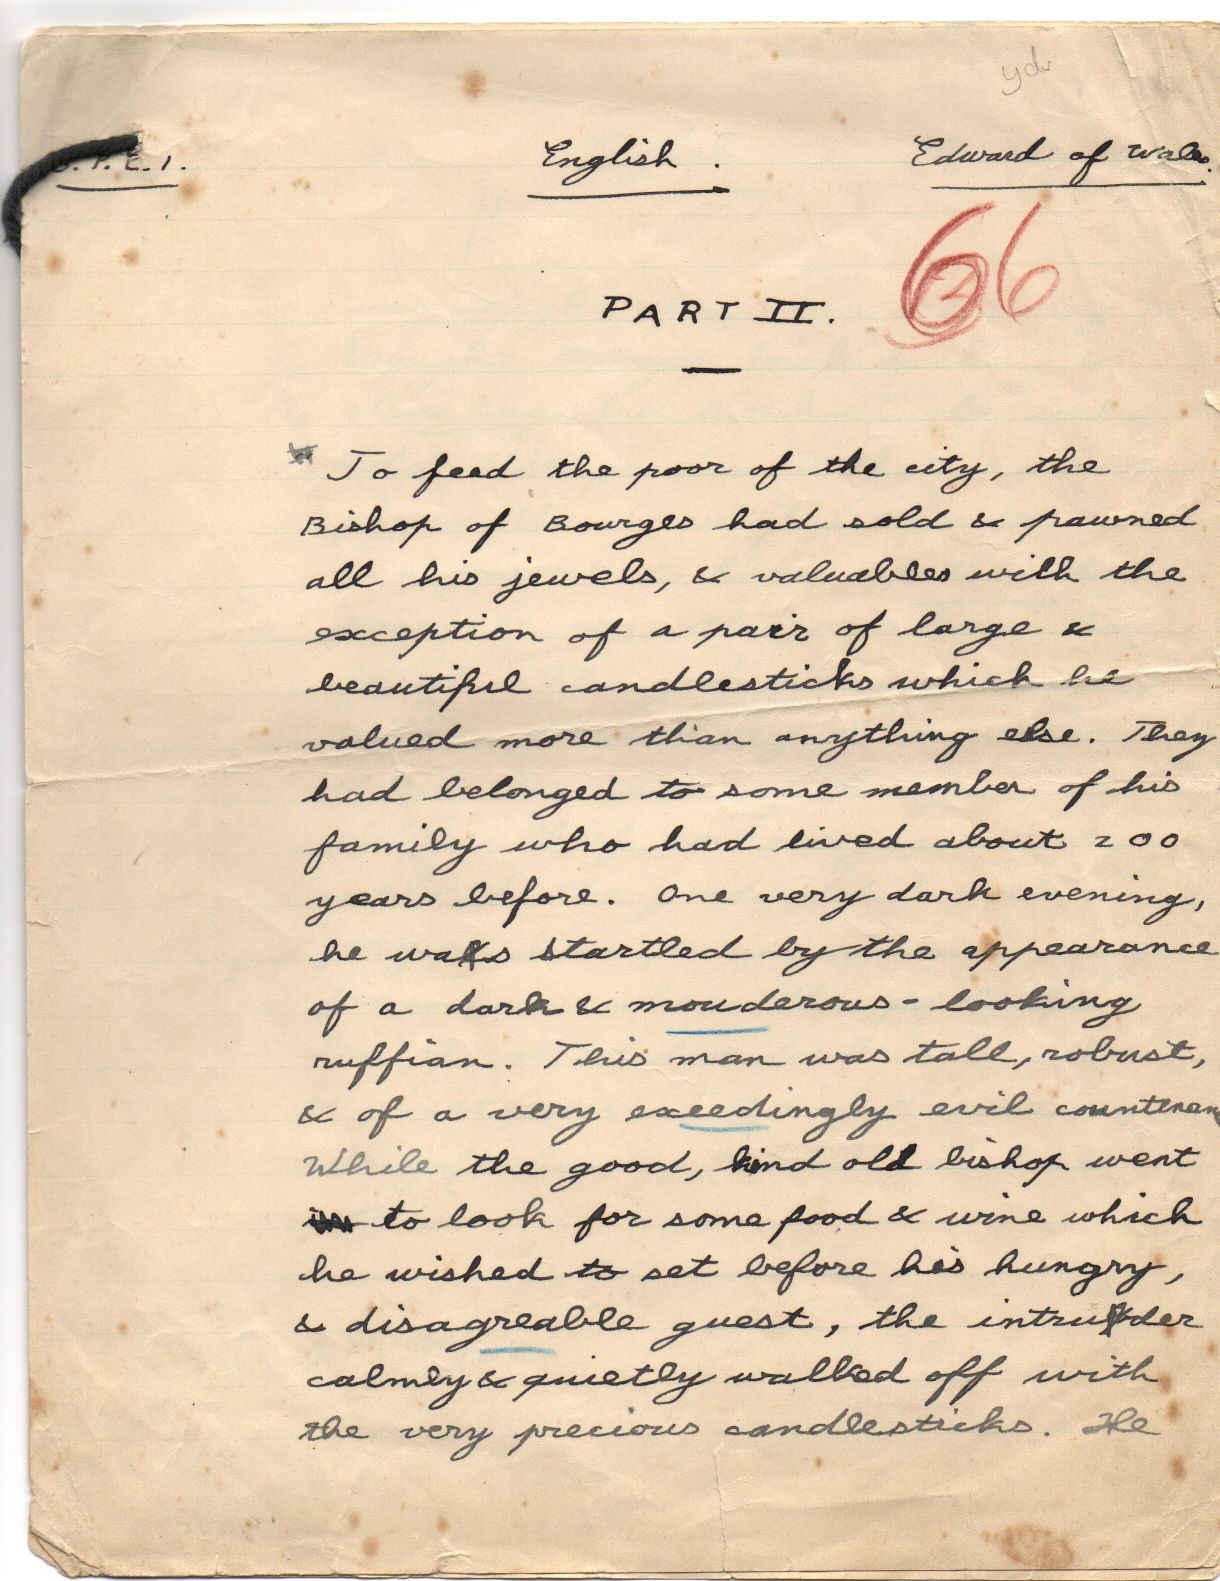 English.
Edward of Wales.
66
PART II.
To feed the poor of the city, the
Bishop of Bourges had sold & pawned
all his jewels, & valuables with the
exception of a pair of large &
beautiful candlesticks which he
valued more than anything else. They
had belonged to some member of his
family who had lived about 200
years before. One very dark evening,
he was startled by the appearance
of a dark & mouderous-looking
ruffian. This man was tall, robust,
& of a very exceedingly evil countenanc
While the good, kind old bishop went
to look for some food & wine which
he wished to set before his hungry,
& disagreable guest, the intruder
calmly & quietly walked off with
the very precious candlesticks. He